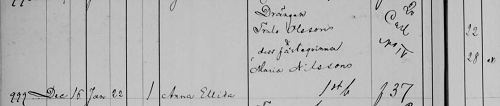 Drängen
Truls Olsson
&
dess fästeqvinna
Maria Nilsson
22
28
222 Dec 15 Jan 22 1 Anna Ellida 1st b f 37